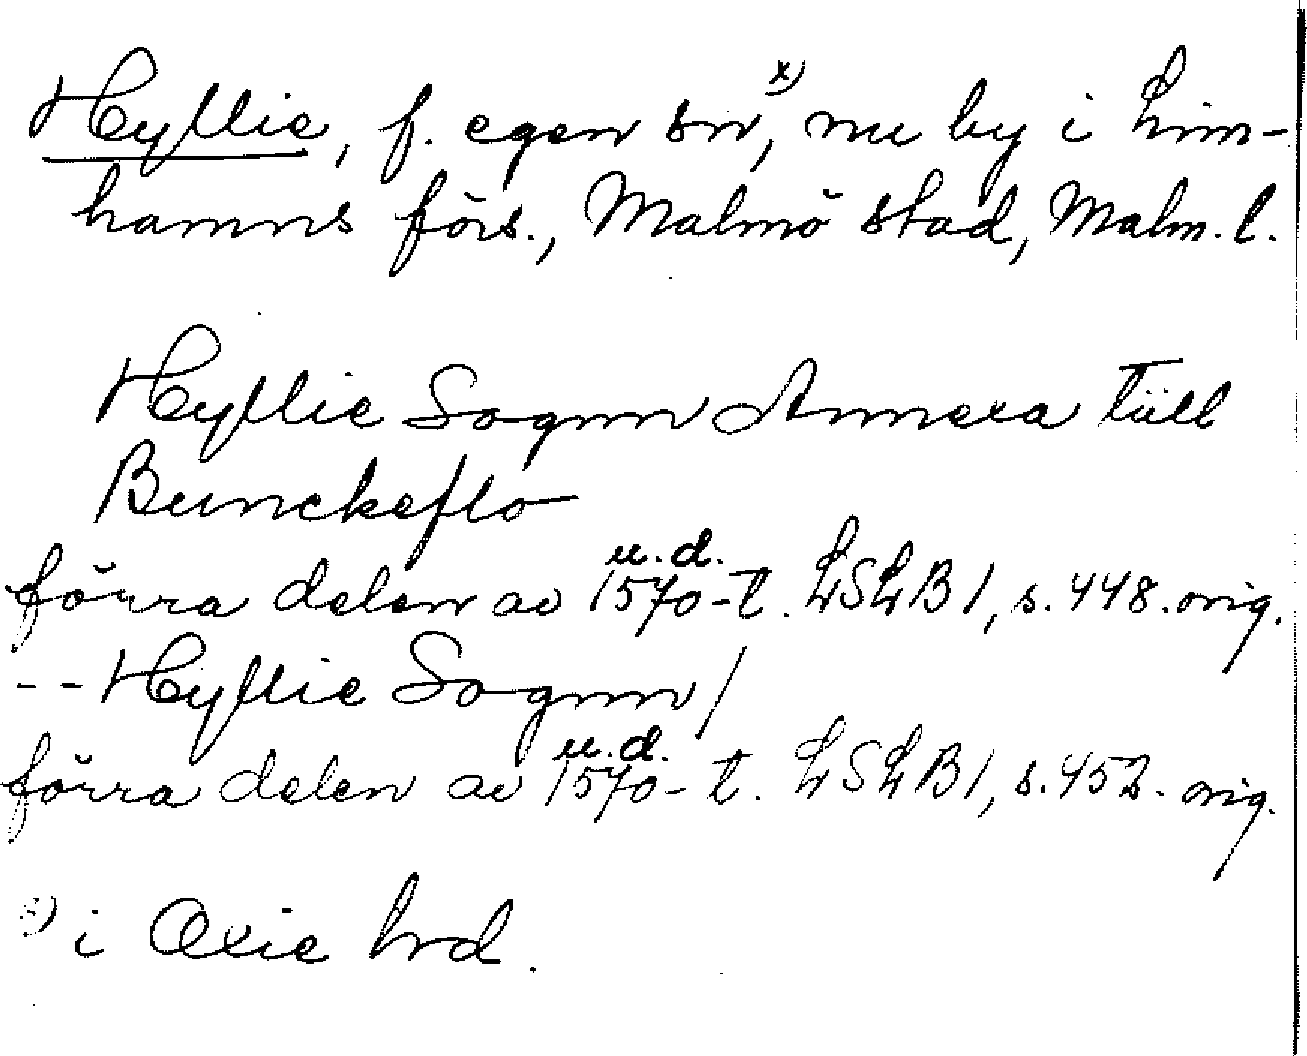 Hyllie, f. egen sn,x) nu by i Lim-
hamns förs., Malmö stad, Malm. l.
Hyllie Sognn Annexa tiill
Bunckeflo
u.d.
förra delen av 1570-t. LSLB 1, s. 448. orig.
-- Hyllie Sognn/
u.d.
förra delen av 1570-t. LSLB 1, s. 452. orig.
x) i Oxie hrd.